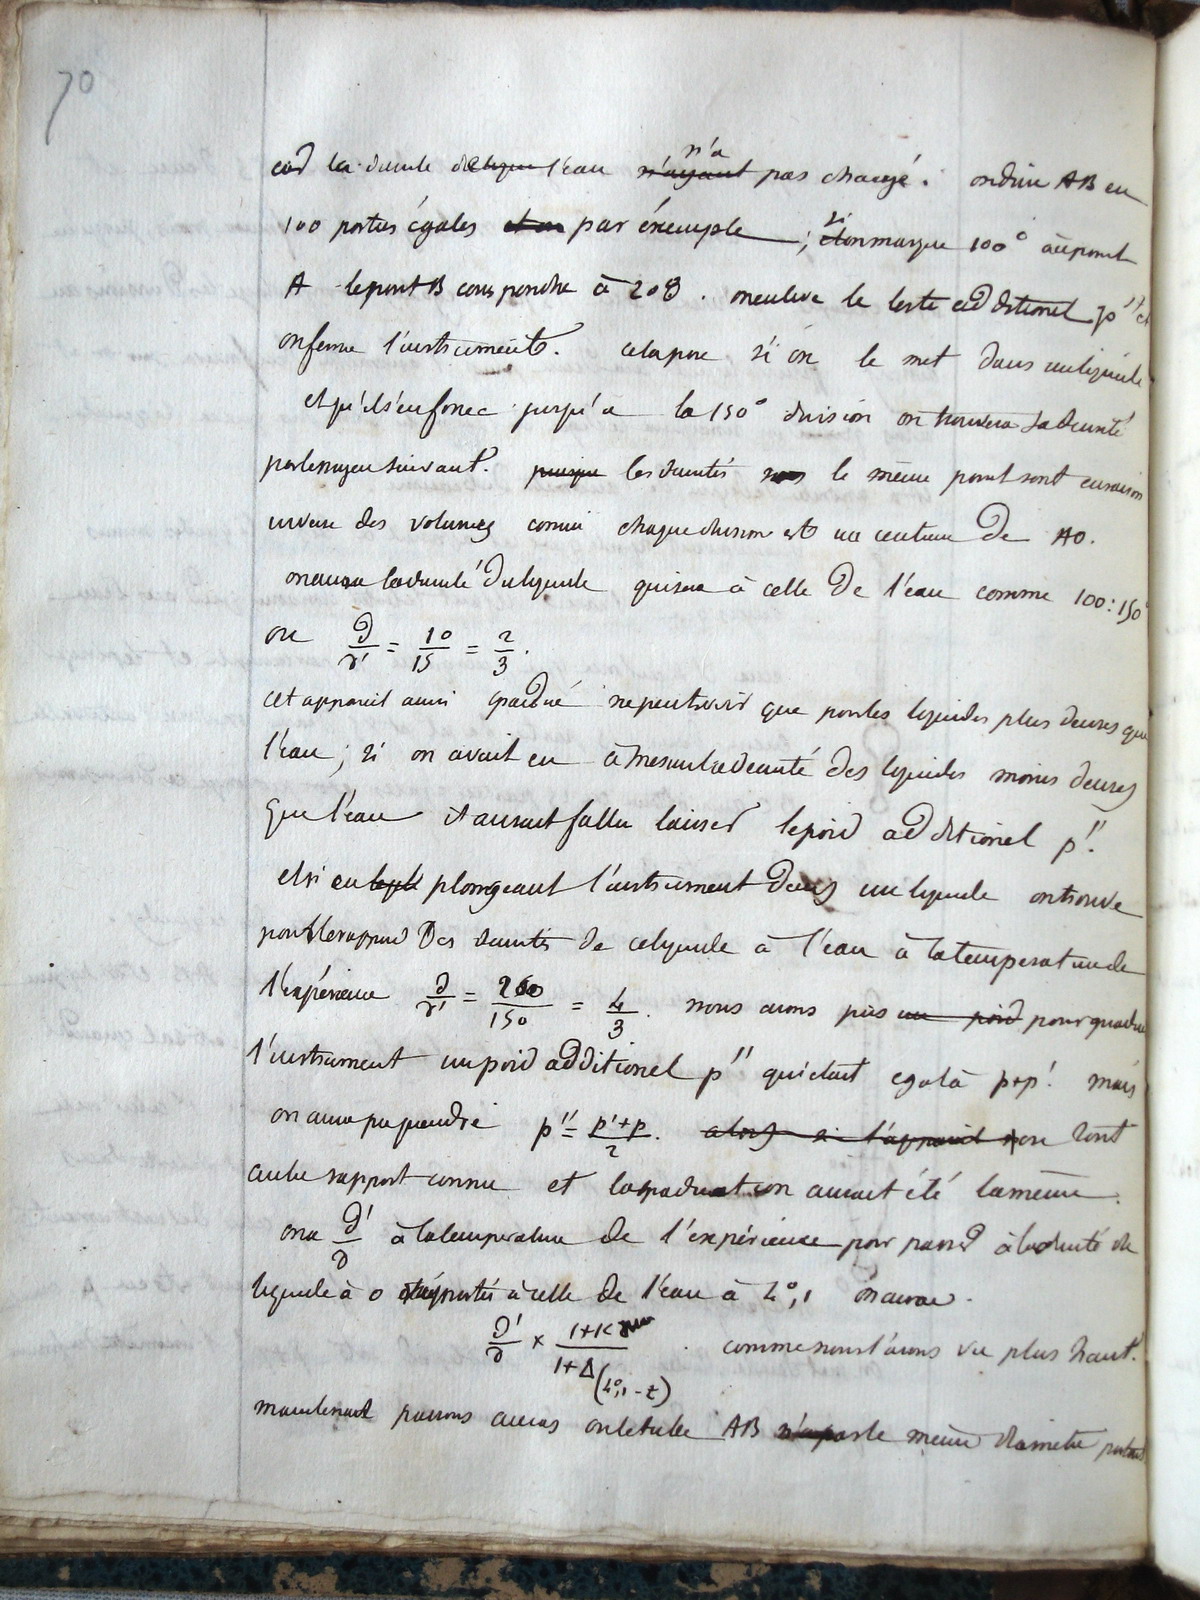 70
car la densité de l'eau n'a pas changé. on divise AB en
100 parties égales par éxemple ; si on marque 100° au point
A le point B correspondra à 200. on enleve le leste additionel p'' et
on ferme l'instrument. cela posé si on le met dans un liquide
et qu'il s'enfonce jusqu'à la 150° division on trouvera sa densité
par le moyen suivant. les densités le même point sont en raison
inverse des volumes comme chaque division est un centieme de AO.
on aura la densité du liquide qui sera à celle de l'eau comme 100:150
ou ∂/∂' = 10/15 = 2/3.
cet appareil ainsi gradué ne peut servir que pour les liquides plus denses que
l'eau ; si on avait eu à mesurer la densité des liquides moins denses
que l'eau il aurait fallu laisser le poid additionel p''.
et si en plongeant l'instrument dans un liquide on trouve
pour le rapport des densités de ce liquide à l'eau à la temperature de
l'expérience ∂/∂' = 200/150 = 4/3. nous avons pris pour graduer
l'instrument un poid additionel p'' qui était egal à p+p'. mais
on aurait pu prendre p'' = p'+p/2. ou tout
autre rapport connu et la graduation aurait été la même.
on a ∂'/∂ à la temperature de l'expérience pour passer à la densité du
liquide à 0 à celle de l'eau à 4°,1 on aura.
∂'/∂ × 1+K/1+Δ(4°,1-t) comme nous l'avons vu plus haut.
maintenant passons au cas où le tube AB le même diametre partout